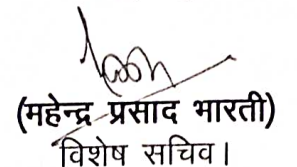 (महेन्द्र प्रसाद भारती)
विशेष सचिव।